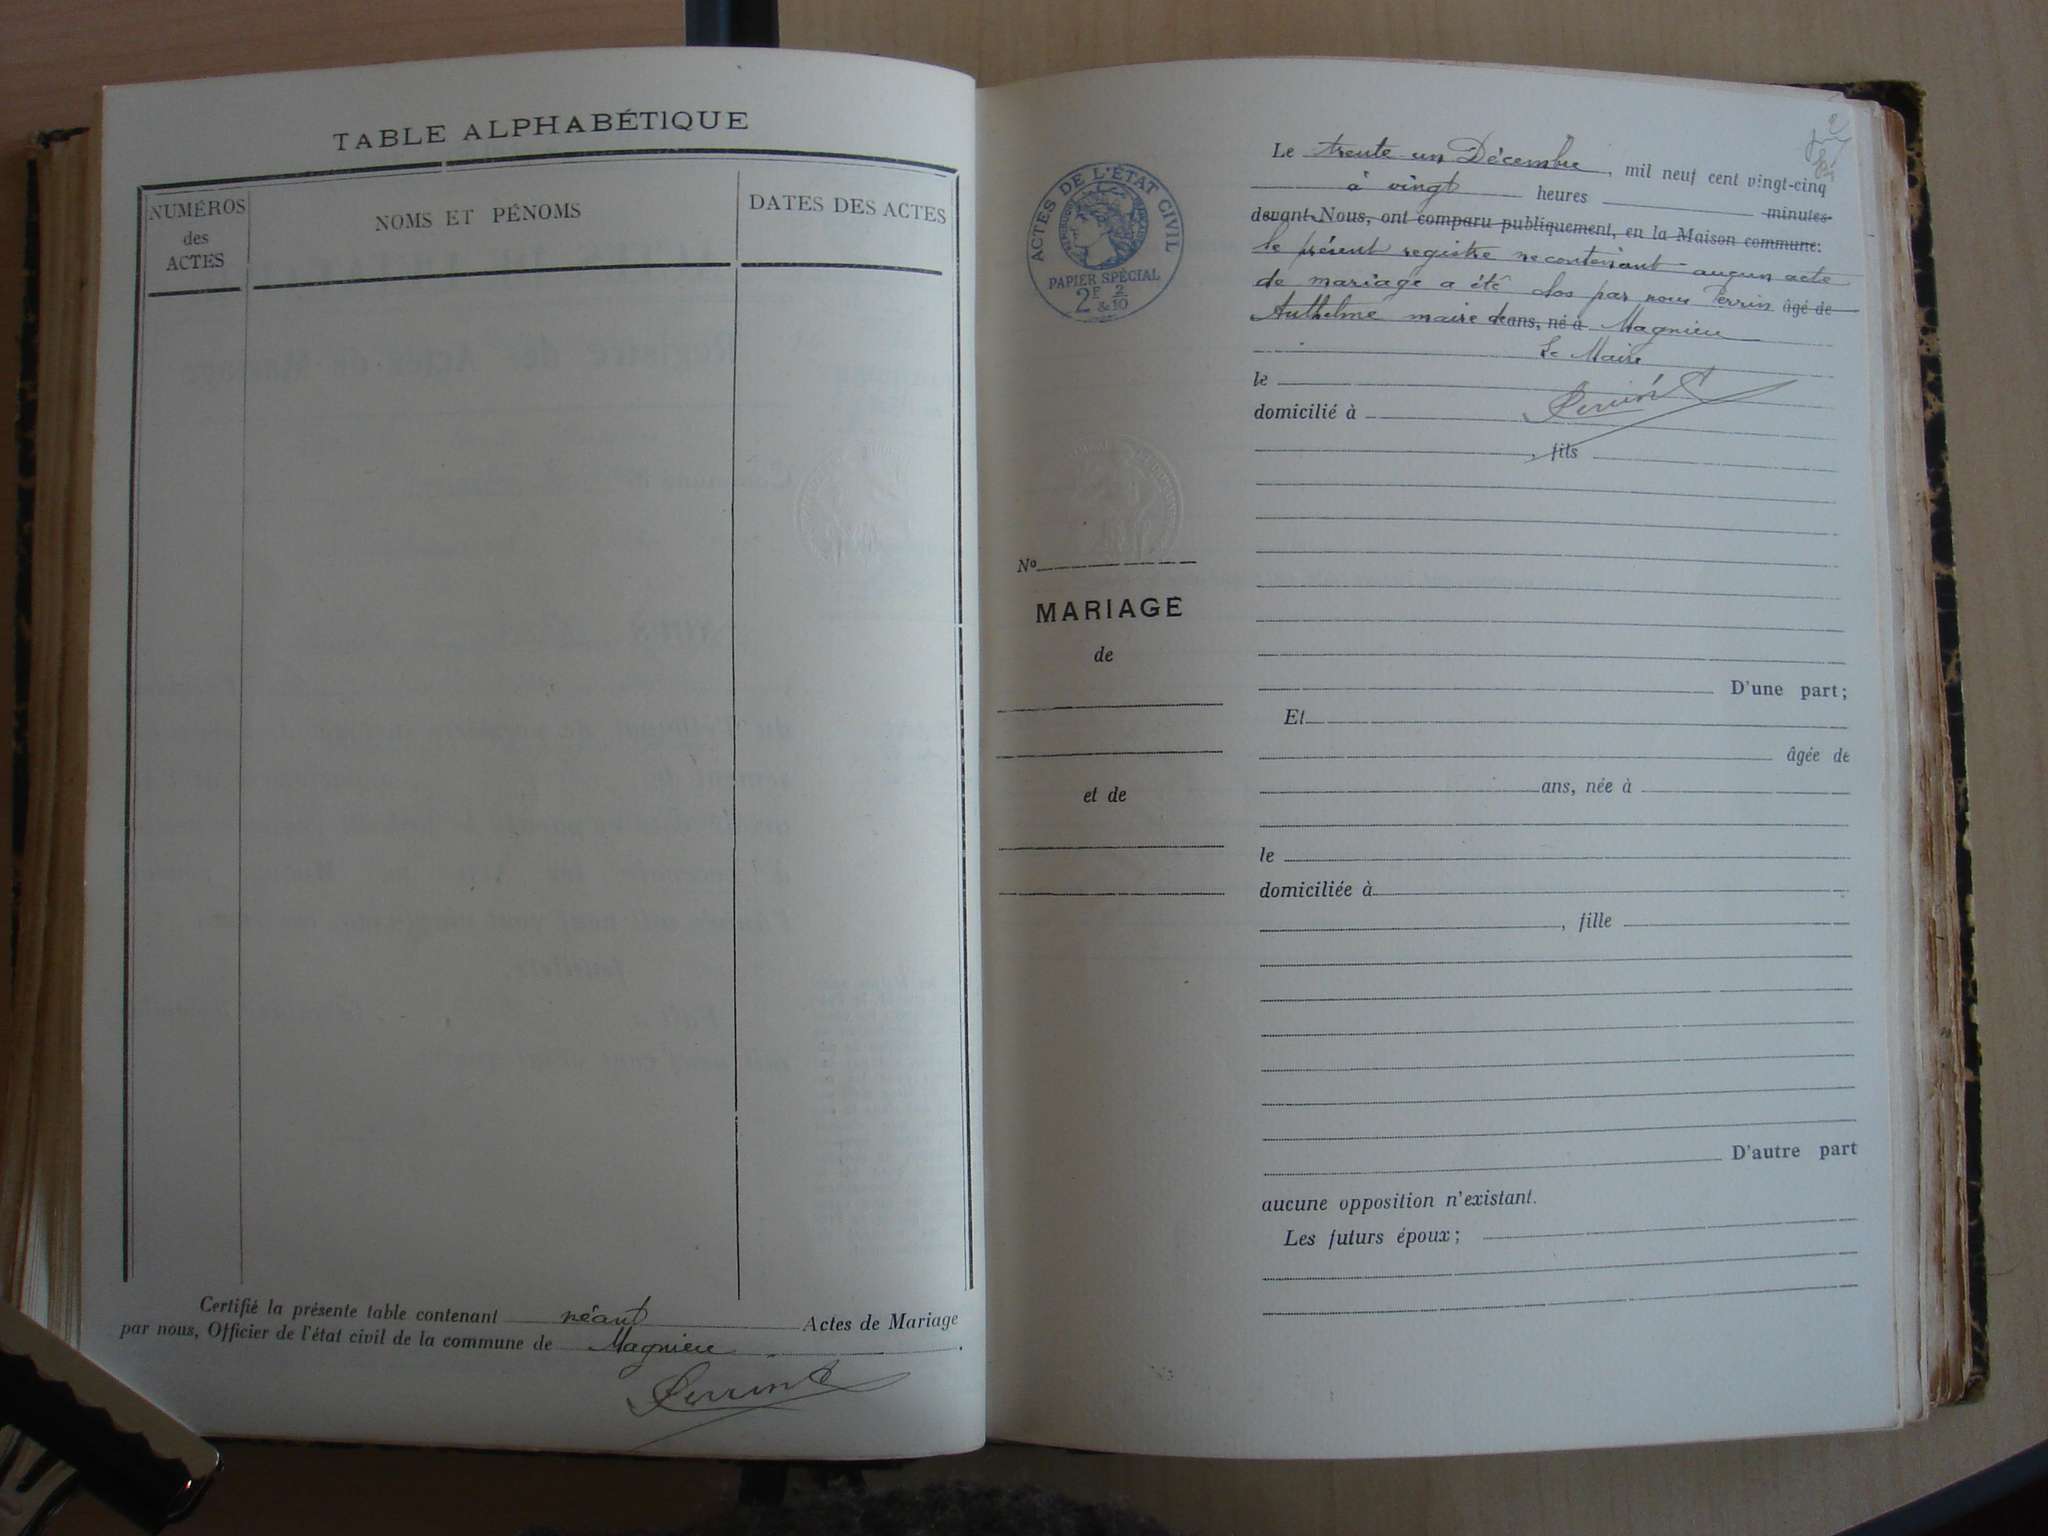 TABLE ALPHABÉTIQUE
NUMÉROS
des
ACTES
NOMS ET PÉNOMS
DATES DES ACTES
Certifié la présente table contenant néant Actes de Mariage
par nous, Officier de l'état civil de la commune de Magnieu
Perrin A
ACTES DE L'ÉTAT CIVIL
PAPIER SPÉCIAL
2F & 2/10
No
MARIAGE
de
et de
2
Le trente un Décembre, mil neuf cent vingt-cinq
à vingt heures minutes
devant Nous, ont comparu publiquement, en la Maison commune:
le présent registre ne contenant aucun acte
de mariage a été clos par nous Perrin âgé de
Anthelme maire de ans, né à Magnieu
Le Maire
le
domicilié à Perrin A
, fils
D'une part;
Et
âgée de
ans, née à
le
domiciliée à
, fille
D'autre part
aucune opposition n'existant.
Les futurs époux;